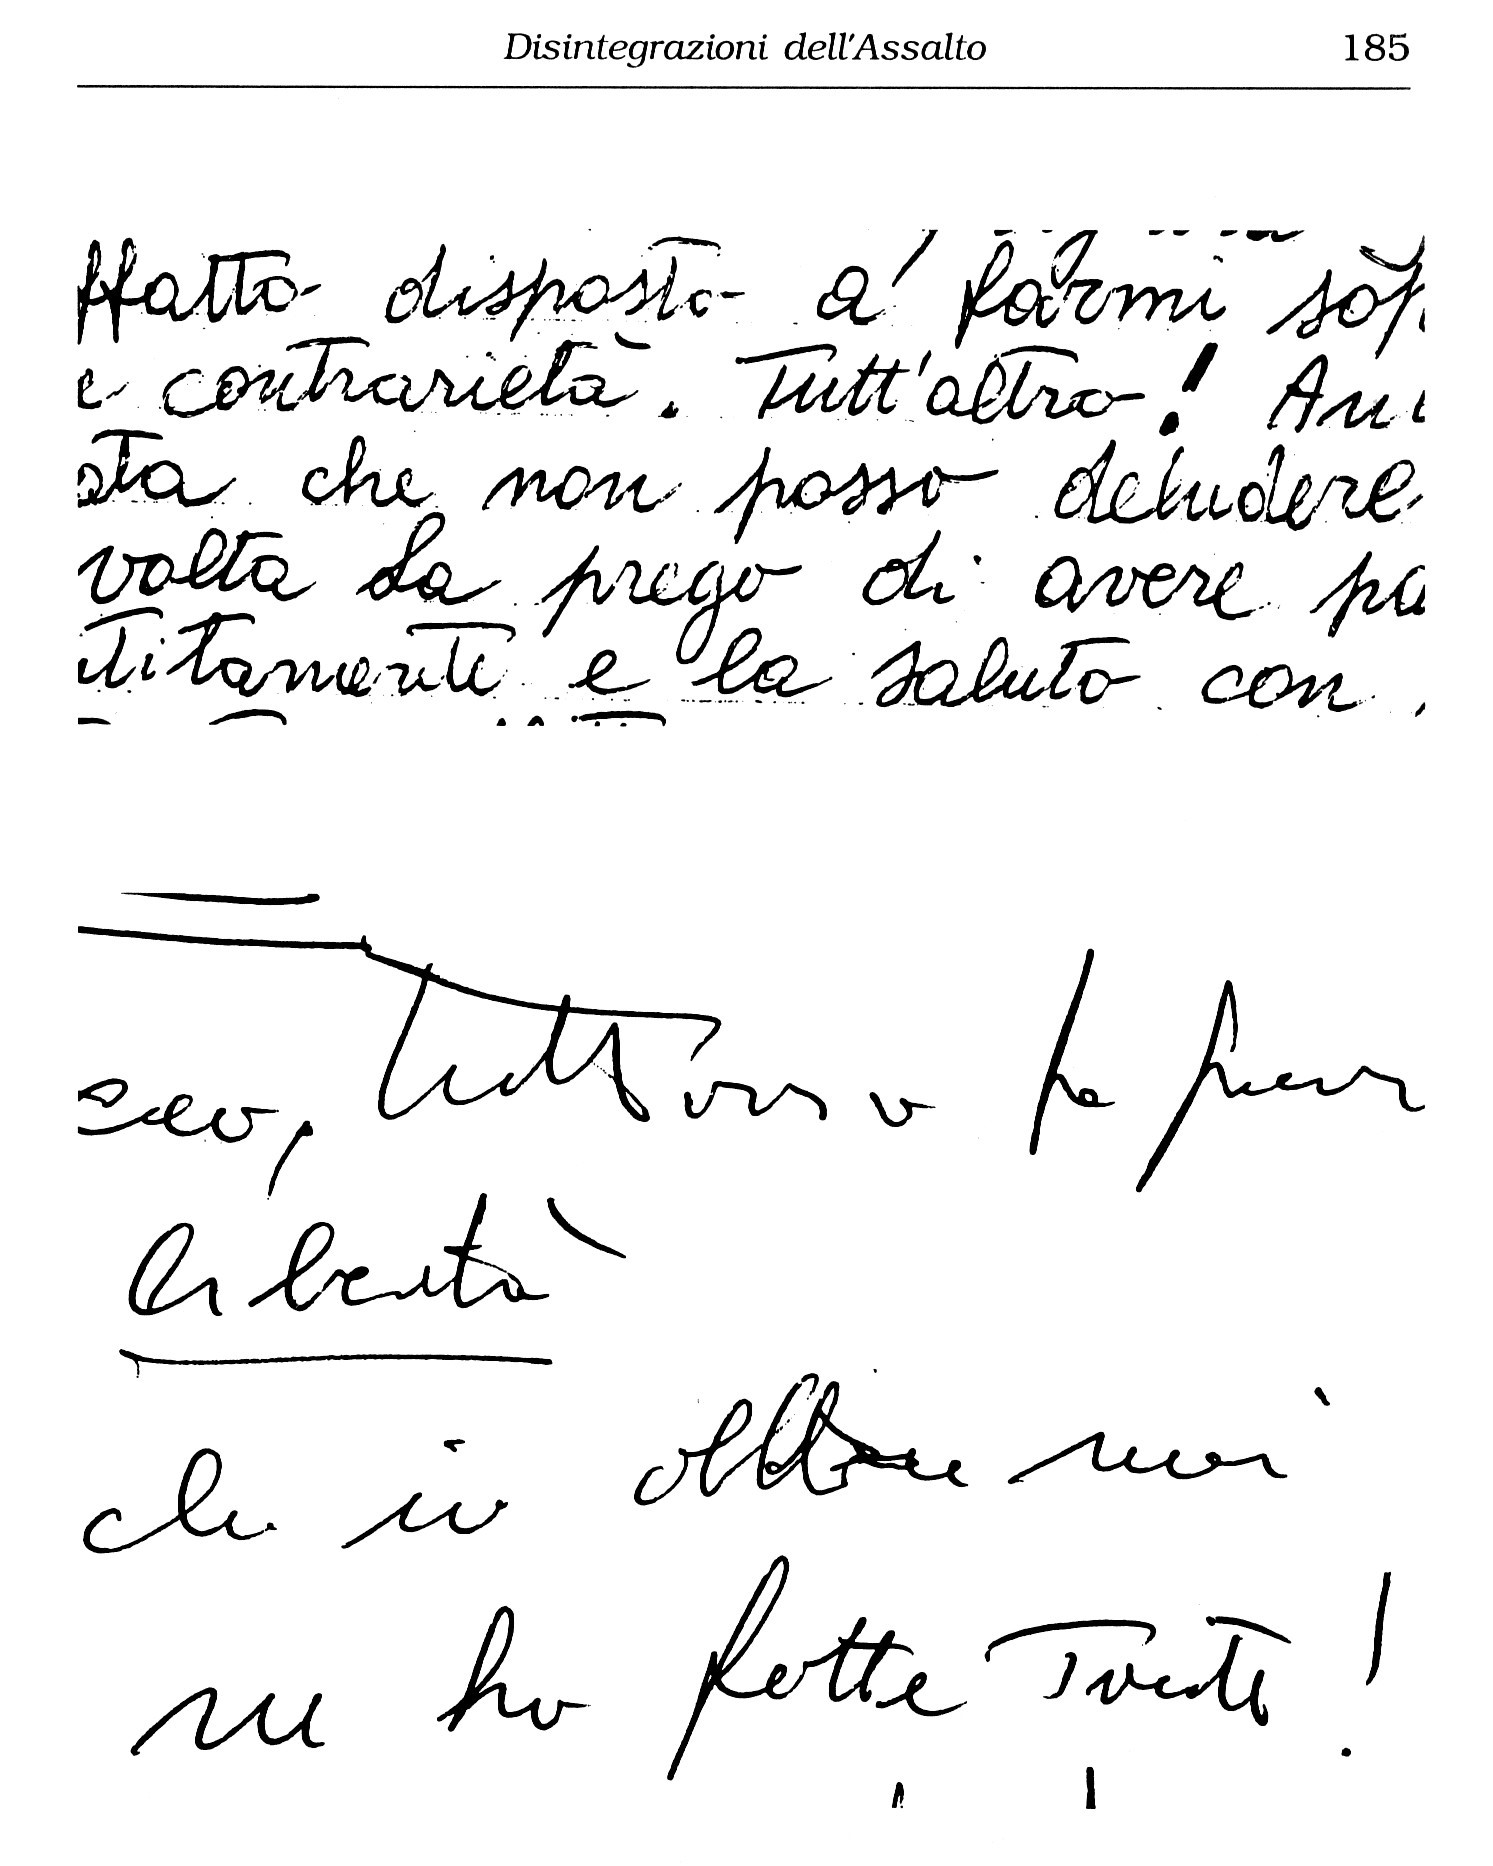 Disintegrazioni dell'Assalto 185
ffatto disposto a' farmi sop
e contrarietà. Tutt'altro! Anc
sta che non posso deludere
volta La prego di avere pa
titamente e la saluto con
libertà
che io abbia mai
ne ho fatte tante!